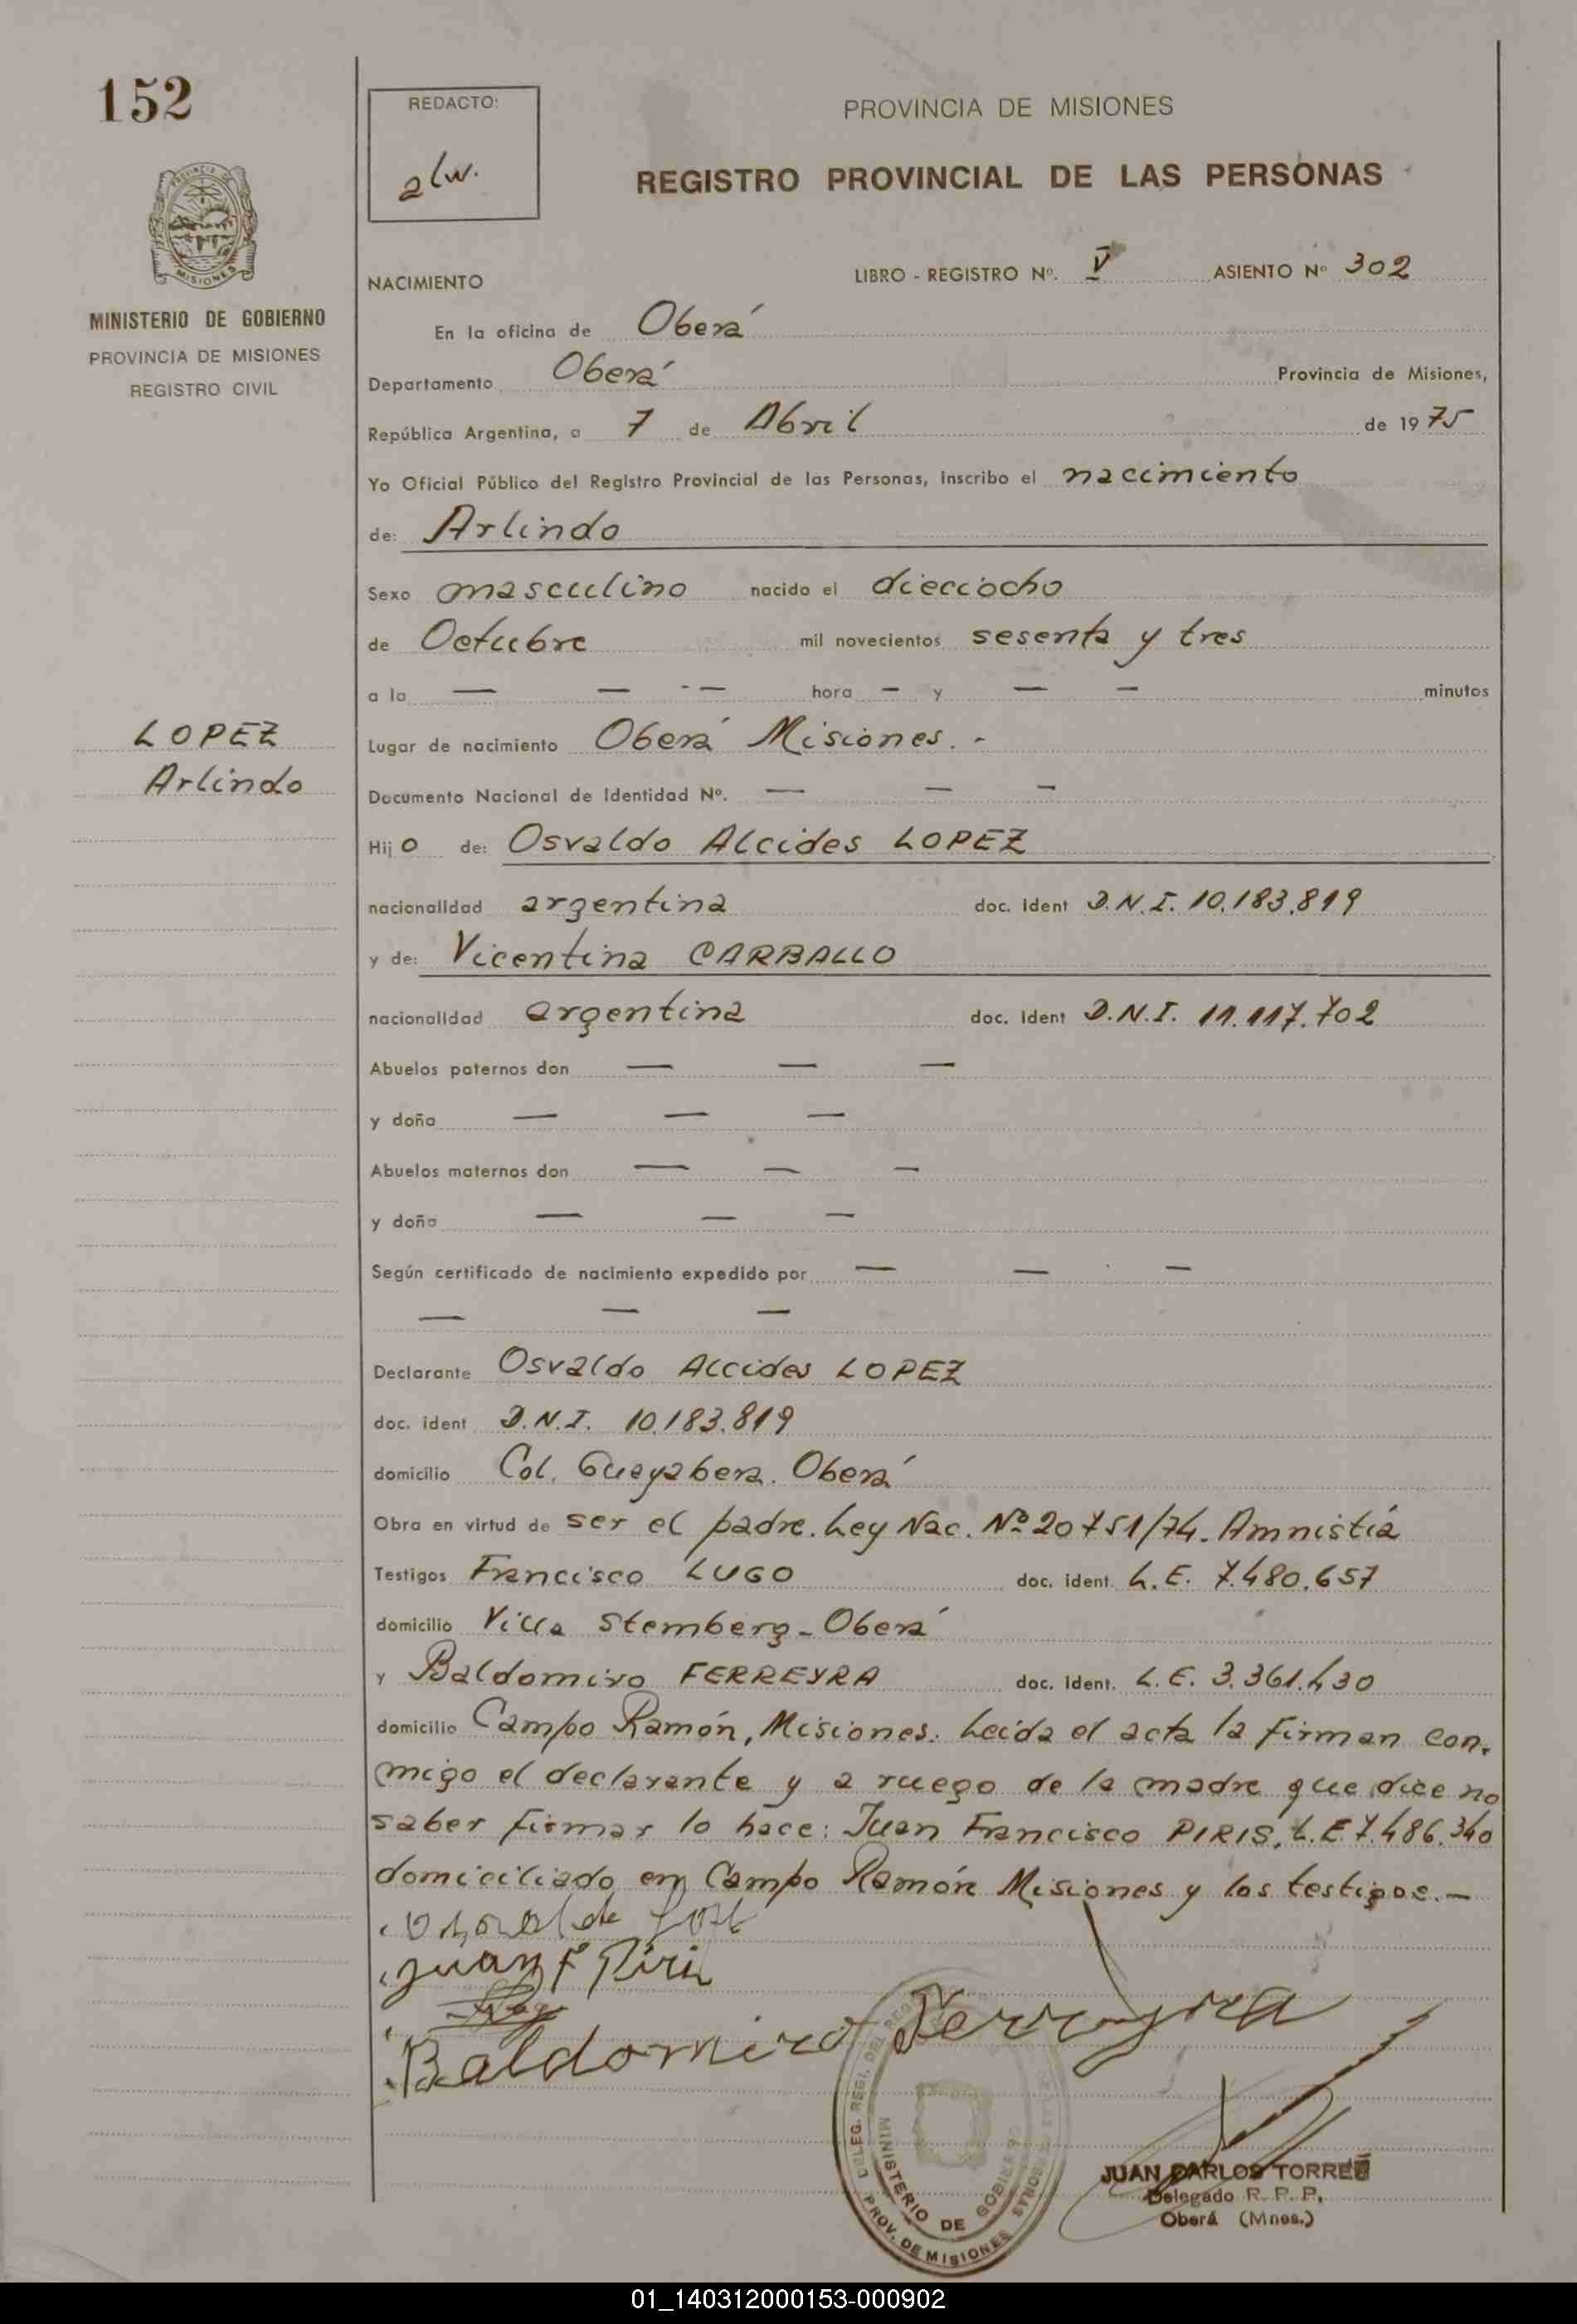 152
REDACTO:
alw.
PROVINCIA DE MISIONES
REGISTRO PROVINCIAL DE LAS PERSONAS
PROVINCIA DE
MISIONES
MINISTERIO DE GOBIERNO
PROVINCIA DE MISIONES
REGISTRO CIVIL
NACIMIENTO LIBRO - REGISTRO Nº. V ASIENTO Nº 302
En la oficina de Oberá
Departamento Oberá Provincia de Misiones,
República Argentina, a 7 de Abril de 1975
Yo Oficial Público del Registro Provincial de las Personas, inscribo el nacimiento
de: Arlindo
Sexo masculino nacido el dieciocho
de Octubre mil novecientos sesenta y tres
a la — — - — hora — y — — minutos
LOPEZ
Arlindo
Lugar de nacimiento Oberá Misiones. -
Documento Nacional de Identidad Nº. — — —
Hijo de: Osvaldo Alcides LOPEZ
nacionalidad argentina doc. Ident D.N.I. 10.183.819
y de: Vicentina CARBALLO
nacionalidad argentina doc. Ident D.N.I. 11.117.702
Abuelos paternos don — — —
y doña — — —
Abuelos maternos don — — —
y doña — — —
Según certificado de nacimiento expedido por — — —
— — —
Declarante Osvaldo Alcides LOPEZ
doc. ident D.N.I. 10.183.819
domicilio Col. Guayabera. Oberá
Obra en virtud de ser el padre. Ley Nac. Nº 20751/74. Amnistía
Testigos Francisco LUGO doc. ident. L.E. 7.480.657
domicilio Villa Stemberg - Oberá
y Baldomiro FERREYRA doc. Ident. L.E. 3.361.430
domicilio Campo Ramón, Misiones. Leída el acta la firman con.
migo el declarante y a ruego de la madre que dice no
saber firmar lo hace: Juan Francisco PIRIS, L.E 7.486.340
domiciliado en Campo Ramón Misiones y los testigos. —
Juan F Piri
Baldomiro Ferreyra
DELEG. REGI. DEL REG. DE LAS PERSONAS
MINISTERIO DE GOBIERNO
PROV. DE MISIONES
JUAN CARLOS TORRES
Delegado R. P. P.
Oberá (Mnes.)
01_140312000153-000902